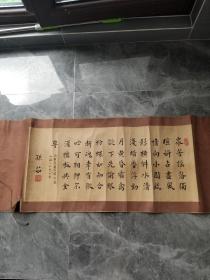 眾芳搖落獨
暄妍占盡風
情向小園疏
影橫斜水清
淺暗香浮動
月黃昏霜禽
欲下先偷眼
粉蝶如知合
斷魂幸有微
吟可相狎不
須檀板共金
尊